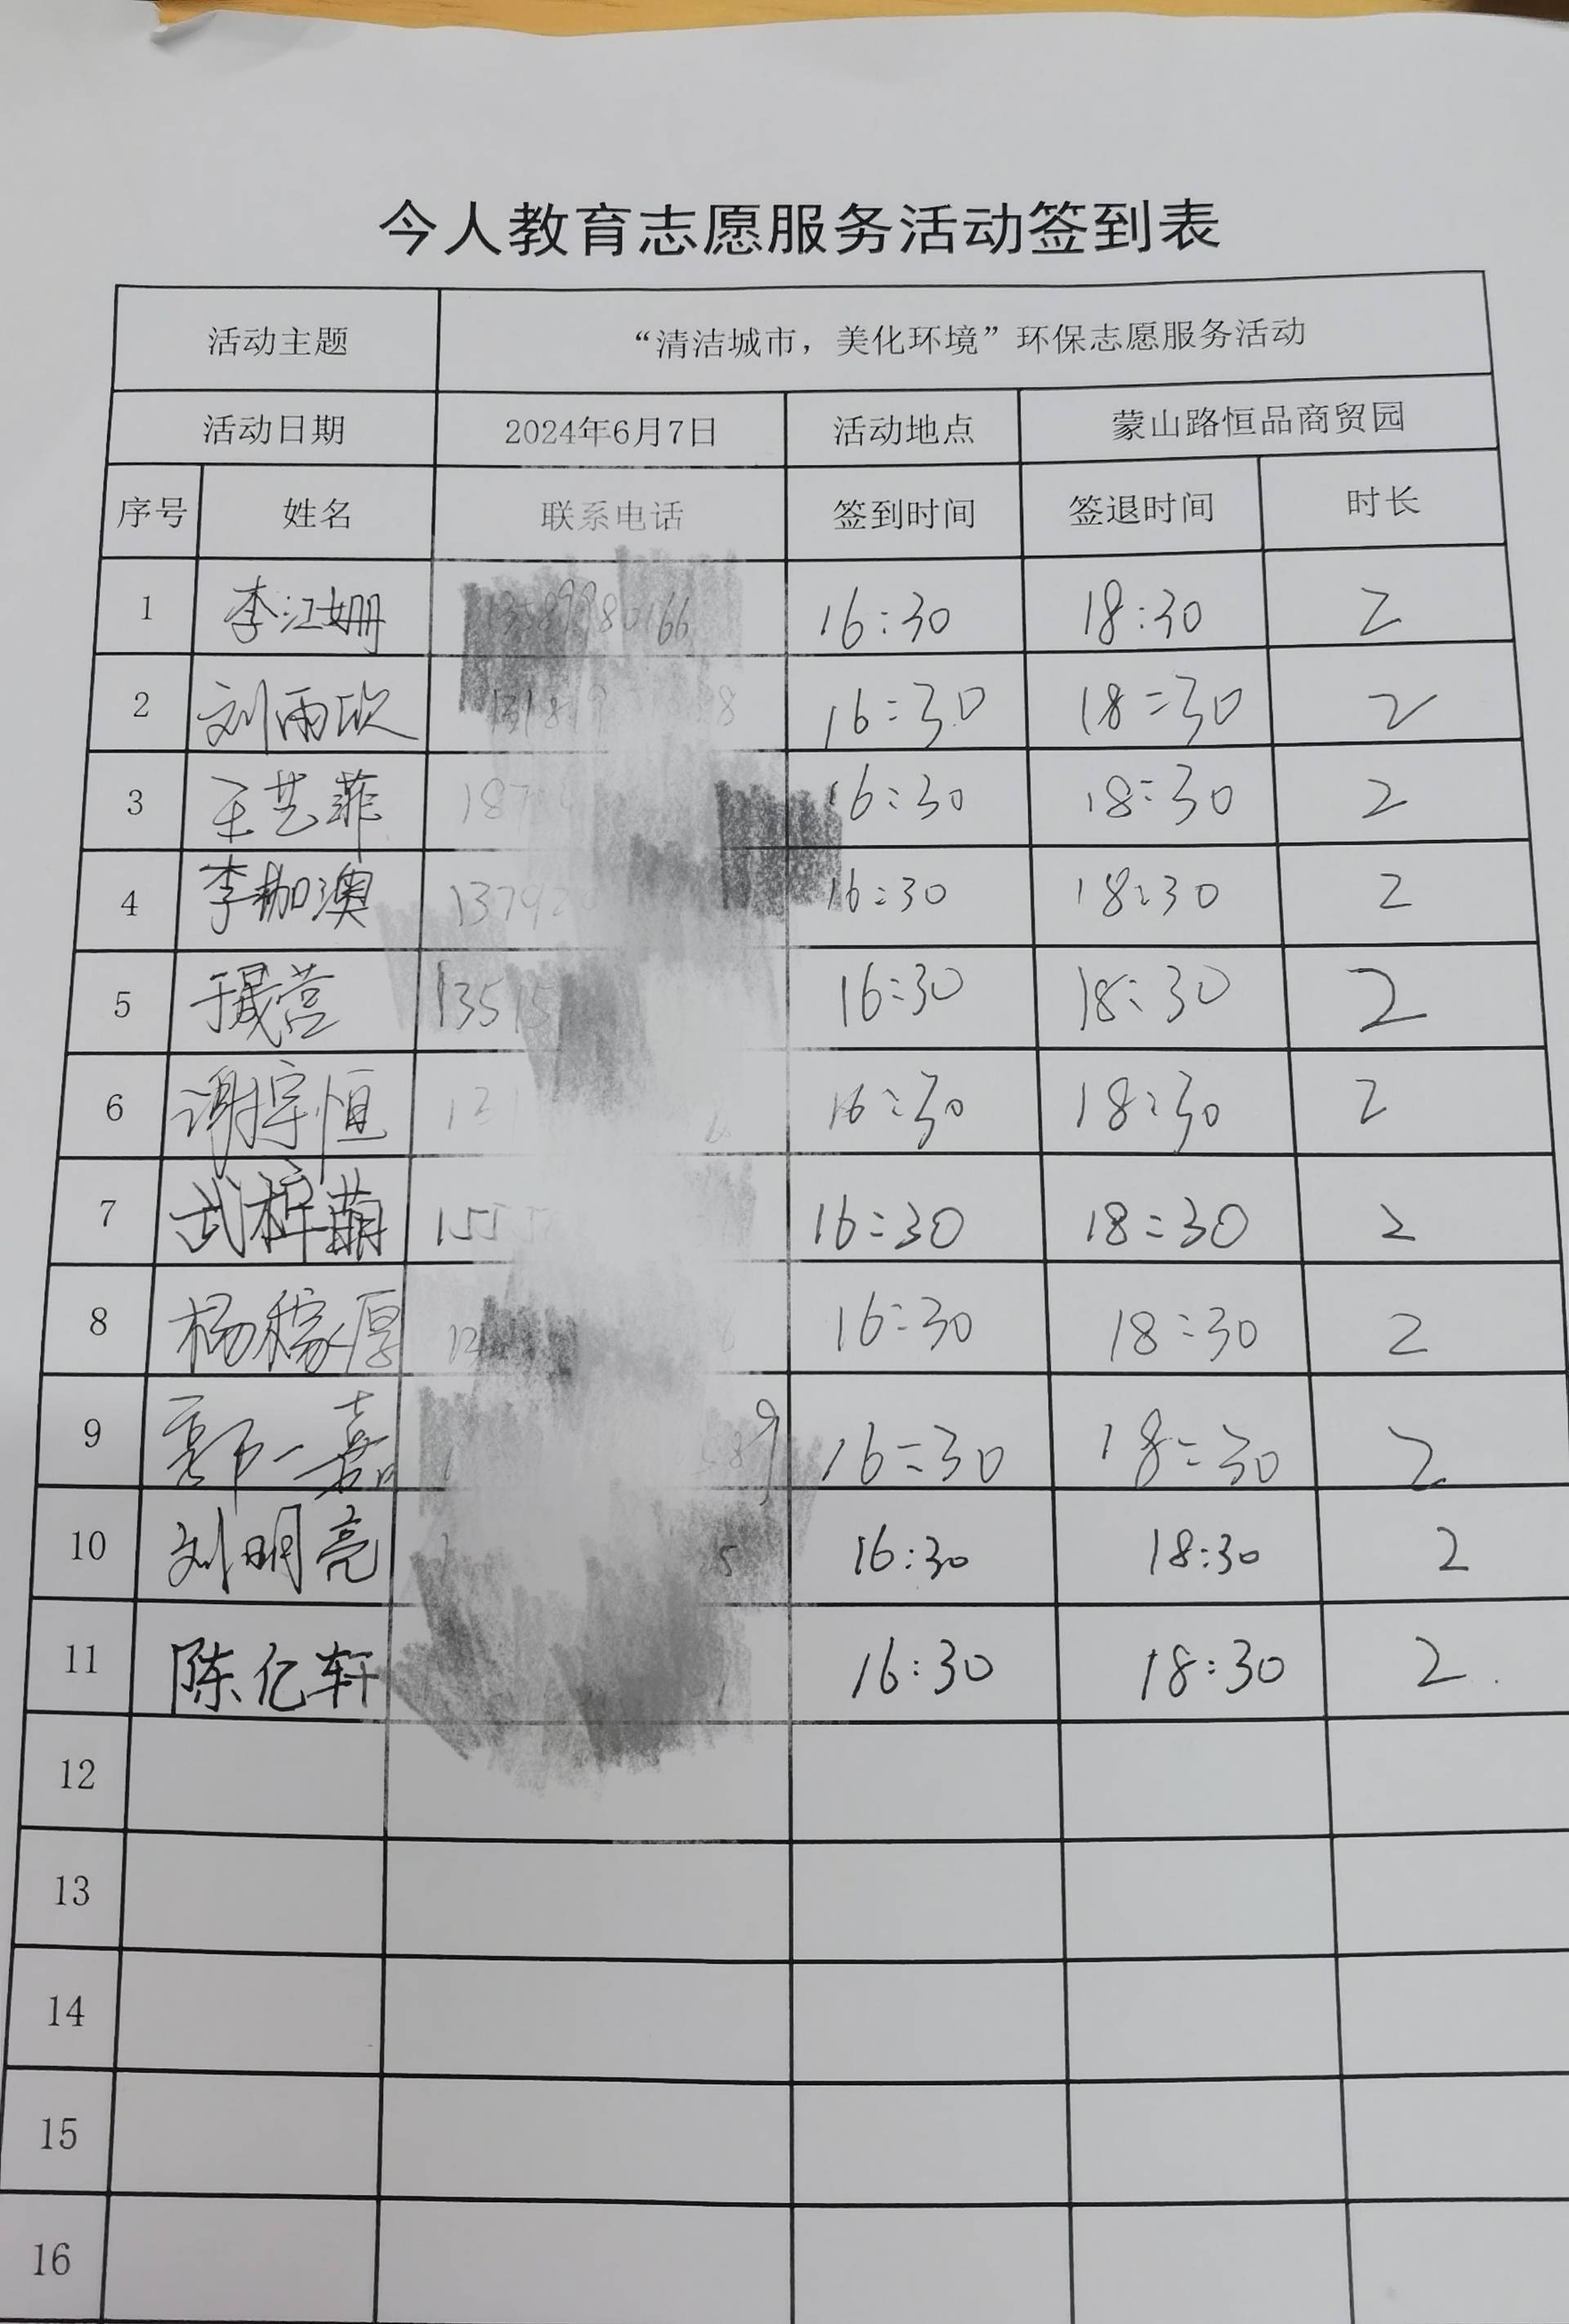 今人教育志愿服务活动签到表
活动主题 “清洁城市，美化环境”环保志愿服务活动
活动日期 2024年6月7日 活动地点 蒙山路恒品商贸园
序号 姓名 联系电话 签到时间 签退时间 时长
1 李江姗 16:30 18:30 2
2 刘雨欣 16:30 18:30 2
3 王艺菲 16:30 18:30 2
4 李珈澳 16:30 18:30 2
5 16:30 18:30 2
6 谢宇恒 16:30 18:30 2
7 武梓萌 16:30 18:30 2
8 杨稼厚 16:30 18:30 2
9 郭一嘉 16:30 18:30 2
10 刘明亮 16:30 18:30 2
11 陈亿轩 16:30 18:30 2
12
13
14
15
16